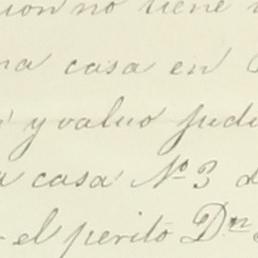 ion no tiene
na casa en
y valuo judi
a casa Nº 3 d
el perito Dn